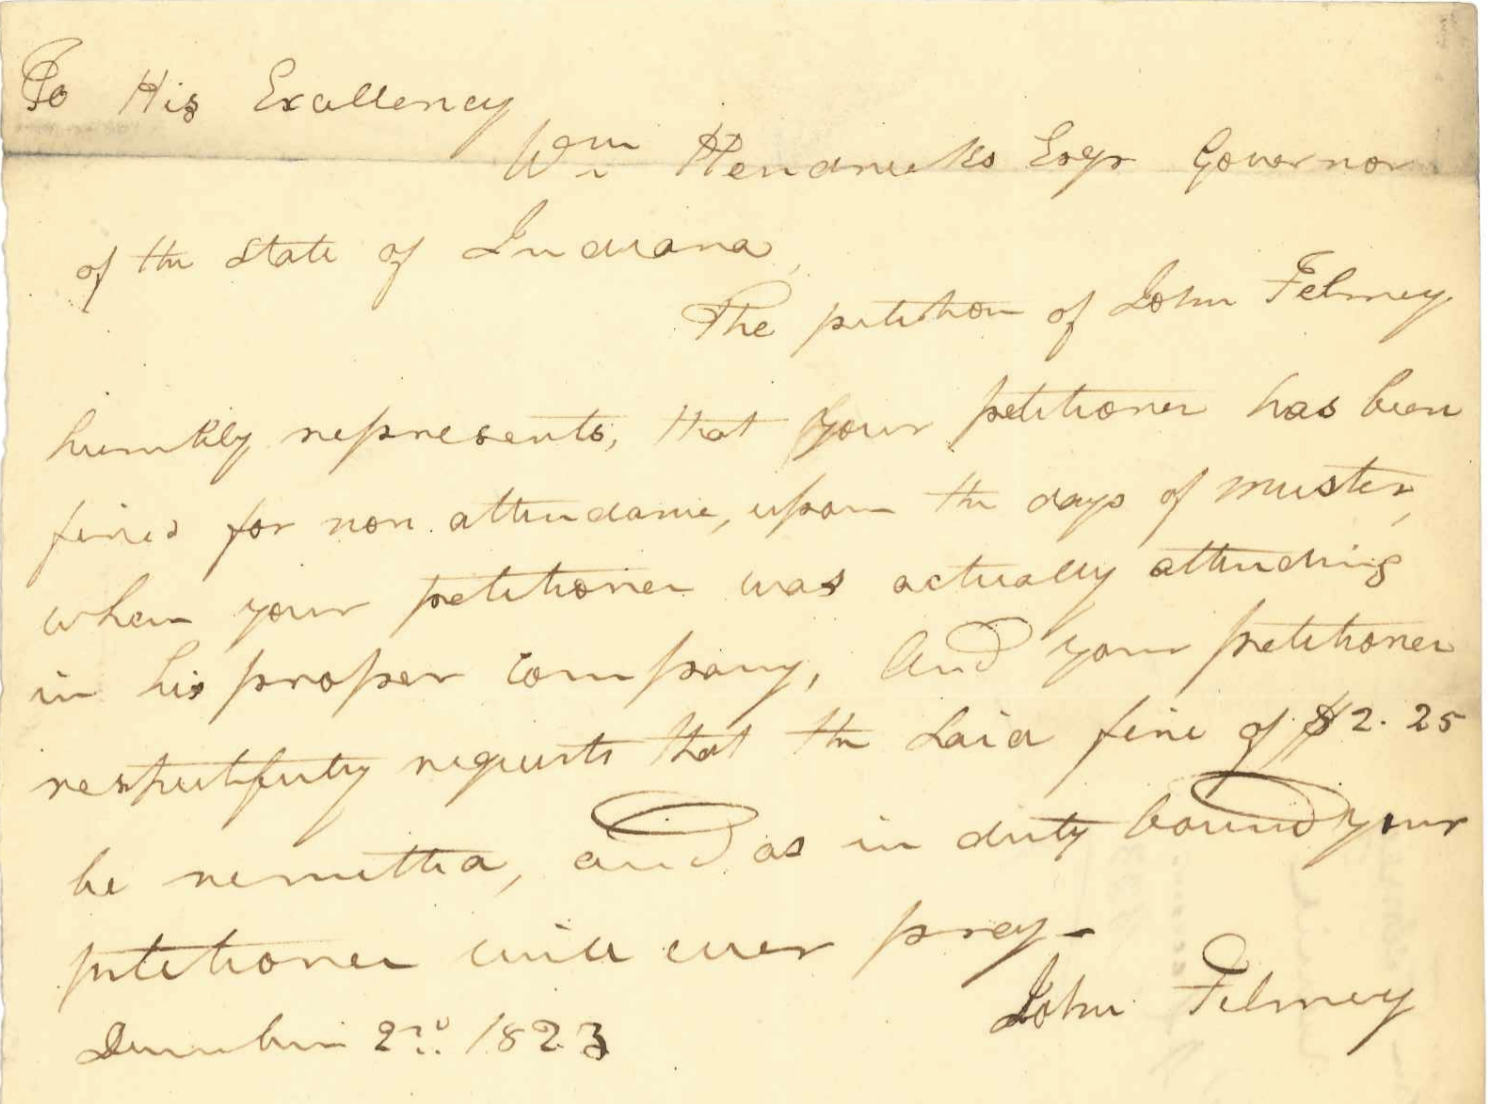 To His Excellency
Wm Hendricks Esqr Governor
of the State of Indiana,
The petition of John Felmey
humbly represents, that your petitioner has been
fined for non attendance, upon the days of muster,
when your petitioner was actually attending
in his proper company, And your petitioner
respectfully requests that the said fine of $2.25
be remitted, and as in duty bound your
petitioner will ever pray-
John Felmey
December 2nd 1823